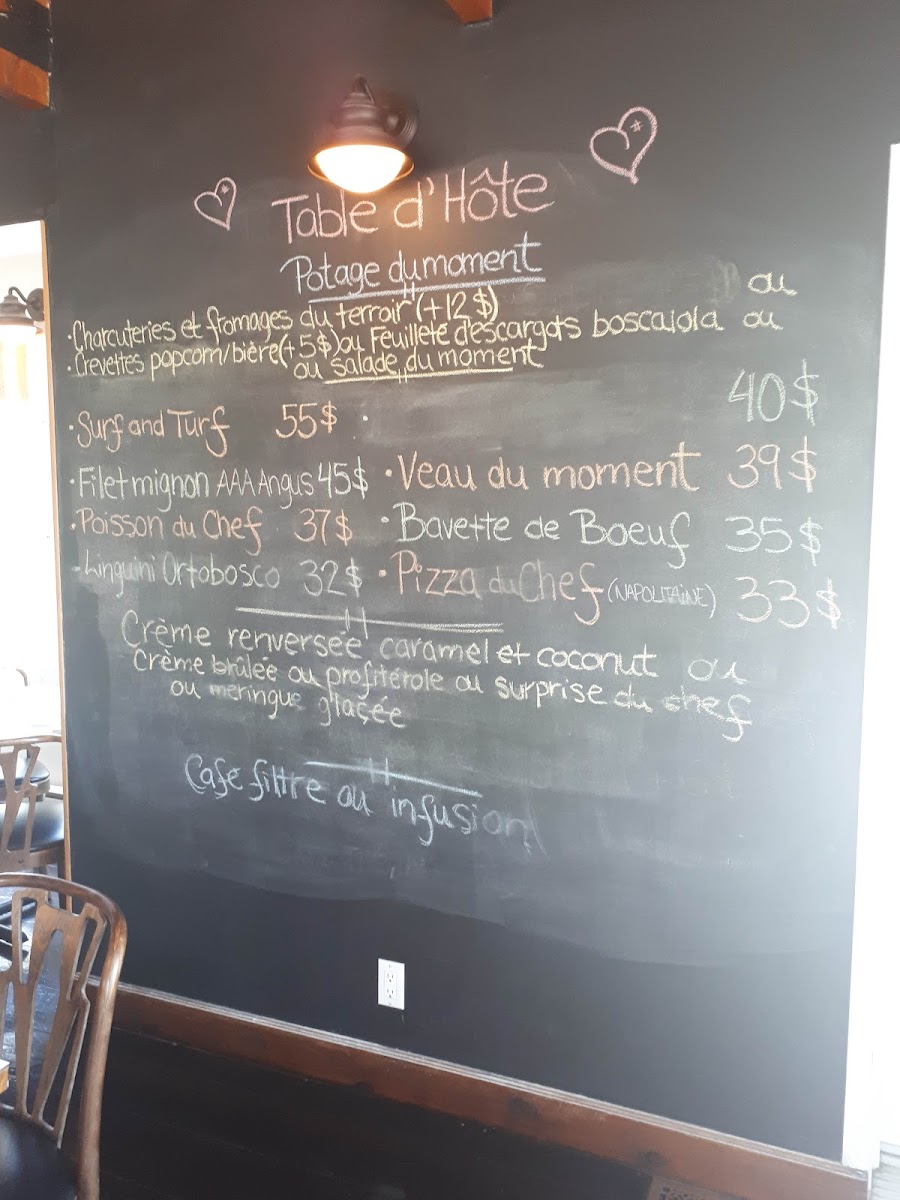 Table d'Hôte
Potage du moment
ou
·Charcuteries et fromages du terroir (+12$)
·Crevettes popcorn/bière(+5$)ou Feuilleté d'escargots boscaiola ou
ou salade du moment
·Surf and Turf 55$
· 40$
·Filet mignon AAA Angus 45$
·Veau du moment 39$
·Poisson du Chef 37$
·Bavette de Boeuf 35$
-Linguini Ortobosco 32$
·Pizza du Chef (NAPOLITAINE) 33$
Crème renversée caramel et coconut ou
Crème brûlée ou profiterole ou surprise du chef
ou meringue glacée
Café filtre ou infusion